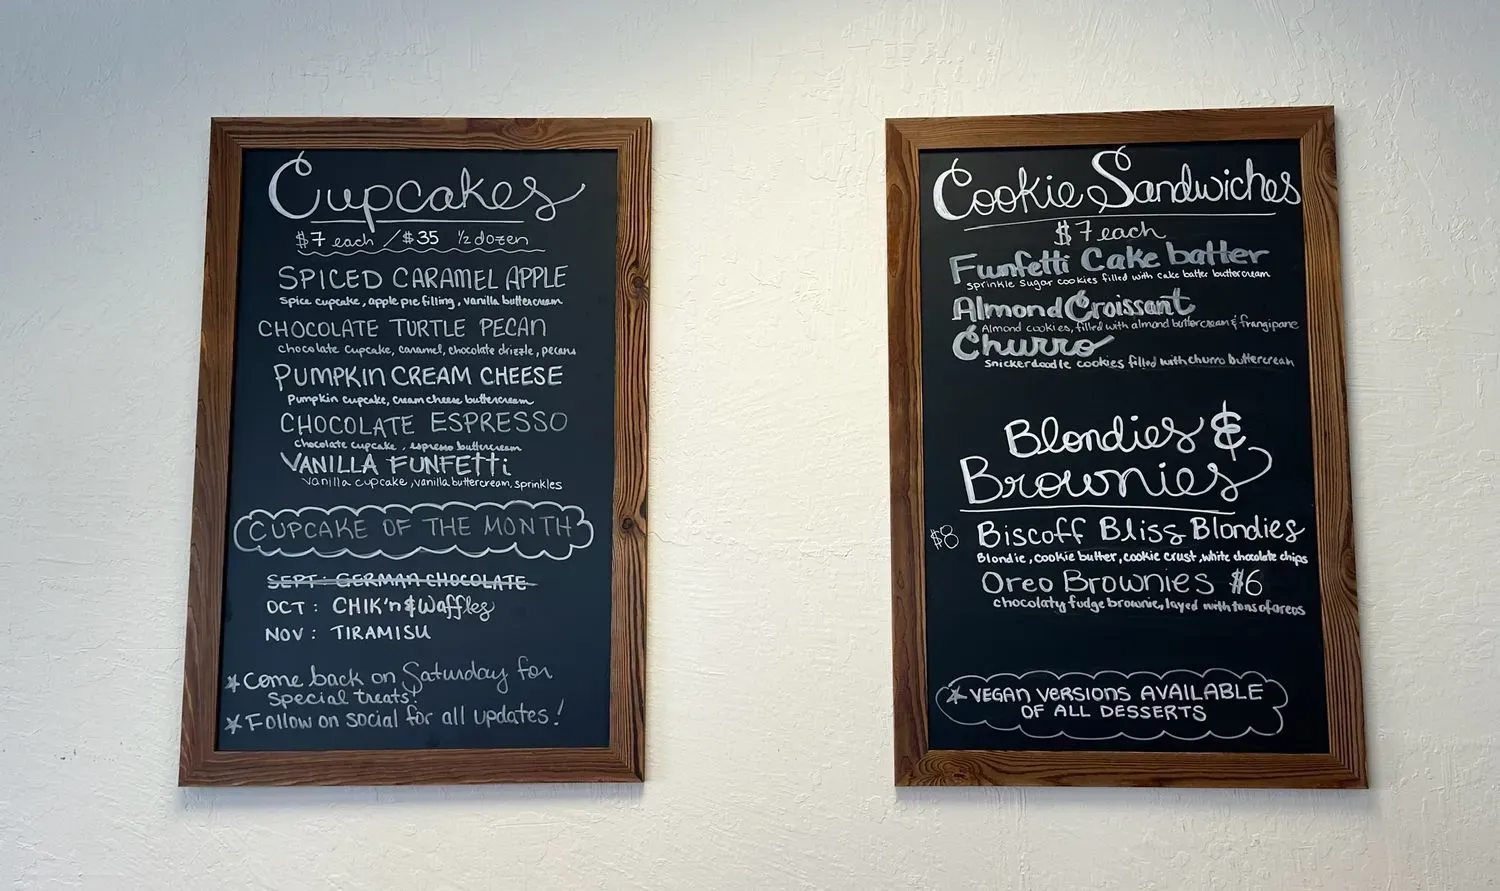 Cupcakes
$7 each / $35 ½ dozen
SPICED CARAMEL APPLE
spice cupcake, apple pie filling, vanilla buttercream
CHOCOLATE TURTLE PECAN
chocolate cupcake, caramel, chocolate drizzle, pecans
PUMPKIN CREAM CHEESE
Pumpkin cupcake, cream cheese buttercream
CHOCOLATE ESPRESSO
chocolate cupcake, espresso buttercream
VANILLA FUNFETTi
vanilla cupcake, vanilla buttercream, sprinkles
CUPCAKE OF THE MONTH
SEPT: GERMAN CHOCOLATE
OCT: CHIK'n & Waffles
NOV: TIRAMISU
* Come back on Saturday for
special treats!
* Follow on social for all updates!
Cookie Sandwiches
$7 each
Funfetti Cake batter
sprinkle sugar cookies filled with cake batter buttercream
Almond Croissant
Almond cookies, filled with almond buttercream & frangipane
Churro
snickerdoodle cookies filled with churro buttercream
Blondies &
Brownies
$8 Biscoff Bliss Blondies
Blondie, cookie butter, cookie crust, white chocolate chips
Oreo Brownies $6
chocolaty fudge brownie, layed with tons of oreos
* VEGAN VERSIONS AVAILABLE
OF ALL DESSERTS